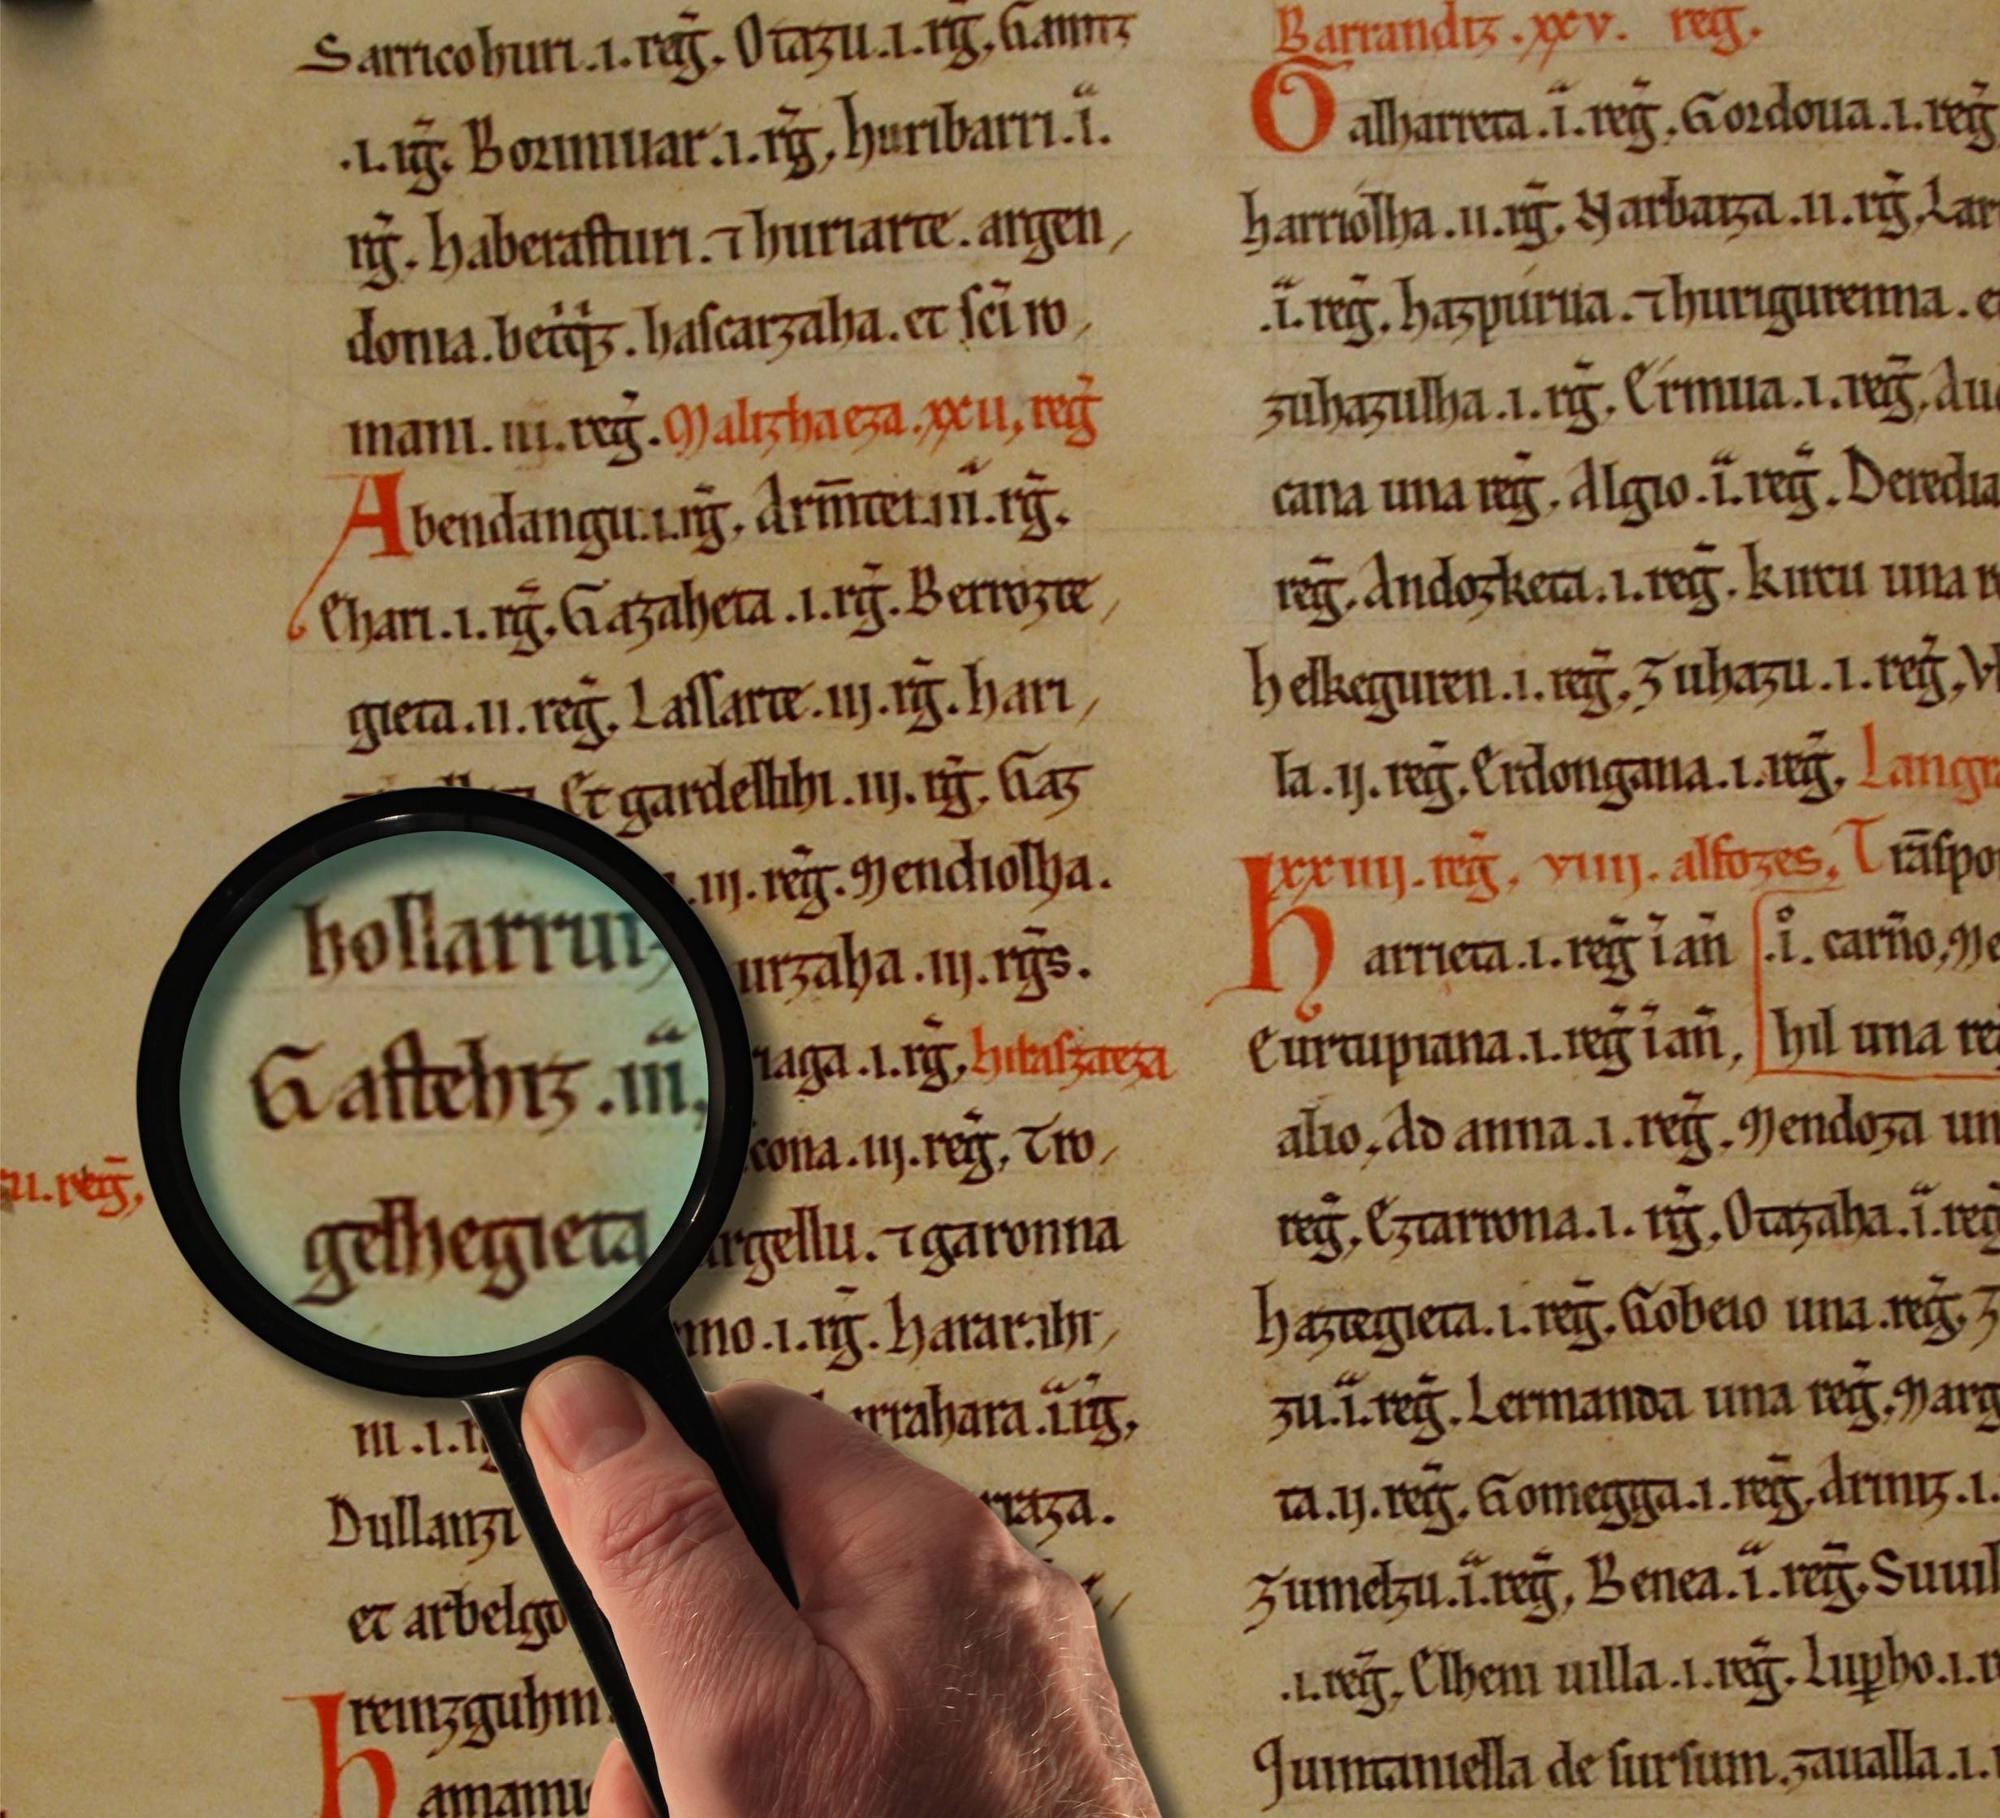 Sarricohuri .i. reg̃. Otazu .i. rg̃, Gamiz
.i. rg̃. Borinivar .i. rg̃, huribarri .i.
rg̃. haberasturi. ⁊ huriarte. argen,
donia. betqz. hascarzaha. et sc̃i ro,
mani. iii. reg̃. Maltzhaeza .xxii, reg̃
Abendangu .i. rg̃, Arm̃tei .iii. rg̃.
Ehari .i. rg̃, Gazaheta .i. rg̃. Berrozte,
gieta .ii. reg̃, Lassarte .iij. rg̃. hari,
Et gardellihi .iij. rg̃, Gaz
.iij. reg̃. Mendiolha.
hollarruiz urzaha .iij. rg̃s.
Gastehiz .iii, iaga .i. rg̃, hiraszaeza
cona .iij. reg̃, Tro,
gelhegieta argellu. ⁊ garonna
u. reg̃,
nno .i. rg̃. harar. ihi,
ni .i. rrahara .ii rg̃,
Dullanzi raza.
et arbelgo
hreinzguhin
amamu
Barrandiz .xxv. reg.
Oalharreta .i. reg̃, Gordoua .i. reg̃
harriolha .ii. rg̃, Narbaiza .ii. rg̃, Lar
.i. reg̃, hazpurua. ⁊ hurigurenna. et
zuhazulha .i. rg̃, Ermua .i. reg̃, Au
cana una reg̃, Algio .i. reg̃. Deredia
reg̃, Andozketa .i. reg̃. kircu una r
helkeguren .i. reg̃, Zuhazu .i. reg̃, V
la .ij. reg̃, Erdongana .i. reg̃, Langr
xxiiij. reg̃, viiij. alfozes, Trãspo
harrieta .i. reg̃ ĩ añ .i. carño, Me
Curtupiana .i. reg̃ ĩ añ, hil una re
alio, Ad anna .i. reg̃, Mendoza un
reg̃, Eztarrona .i. rg̃, Otazaha .i. reg̃
haztegieta .i. reg̃, Gobeio una reg̃, Z
zu .i. reg̃. Lermanda una reg̃, Marg
ta .ij. reg̃. Gomegga .i. reg̃, Ariniz .i.
Zumelzu .i. reg̃, Benea .i. reg̃. Suuil
.i. reg̃, Elheni uilla .i. reg̃. Lupho .i. r
Quintaniella de sursum zaualla .i.